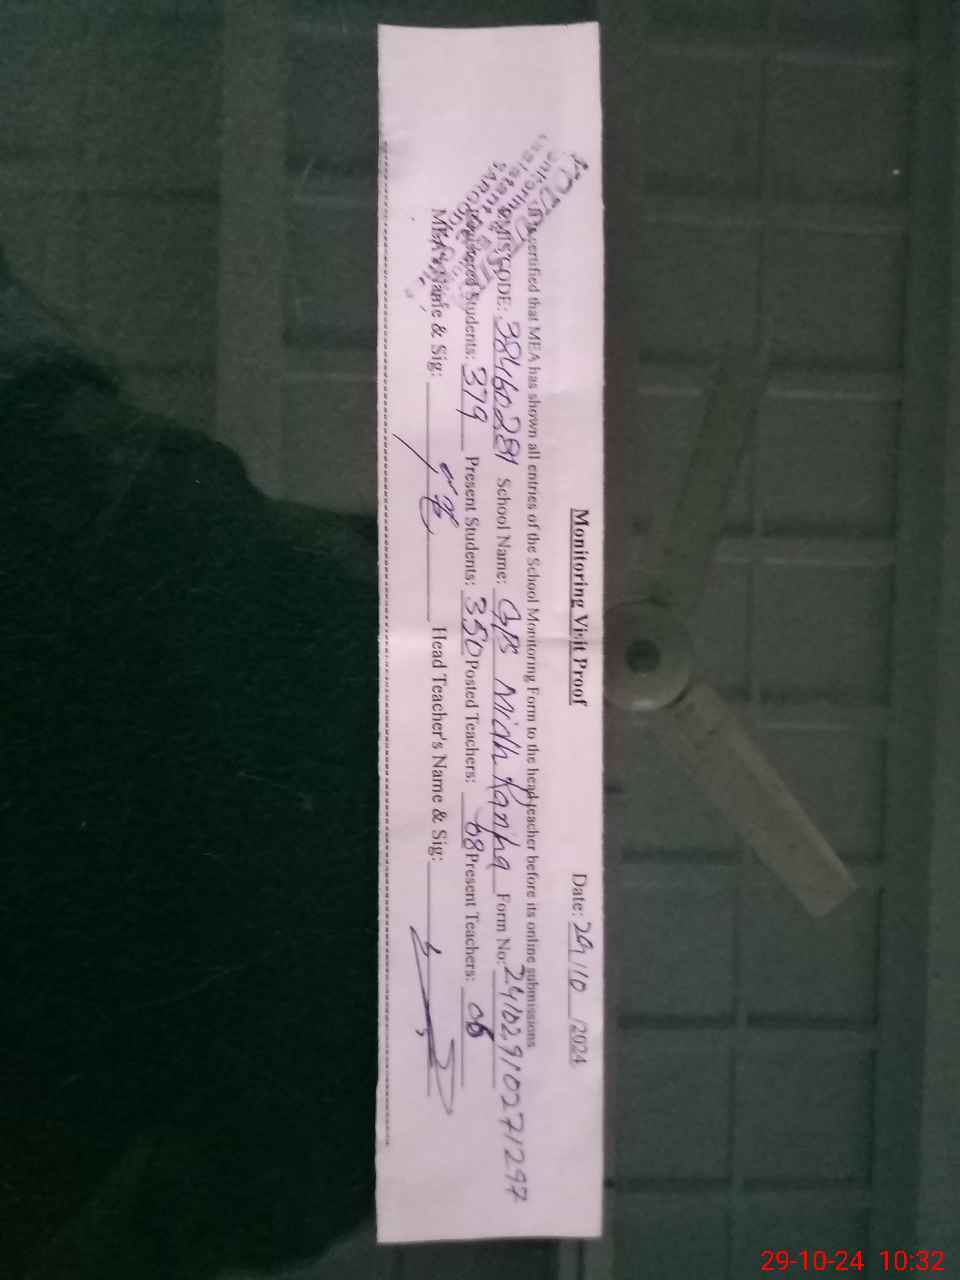 Monitoring Visit Proof Date: 29/10/2024
certified that MEA has shown all entries of the School Monitoring Form to the head teacher before its online submissions
EMIS CODE: 38460281 School Name: GPS Midh Ranjha Form No: 24102910271297
Students: 379 Present Students: 350 Posted Teachers: 08 Present Teachers: 08
MEA's Name & Sig: Head Teacher's Name & Sig:
Monitoring
Assistant
29-10-24 10:32